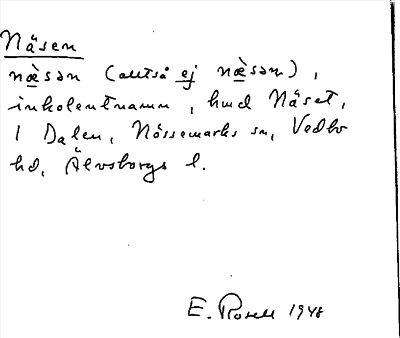 Näsen
næ̀sən (alltså ej næ̀səm),
inkolentnamn, hmd Näset,
1 Dalen, Nössemarks sn, Vedbo
hd, Älvsborgs l.
E. Rosell 1948